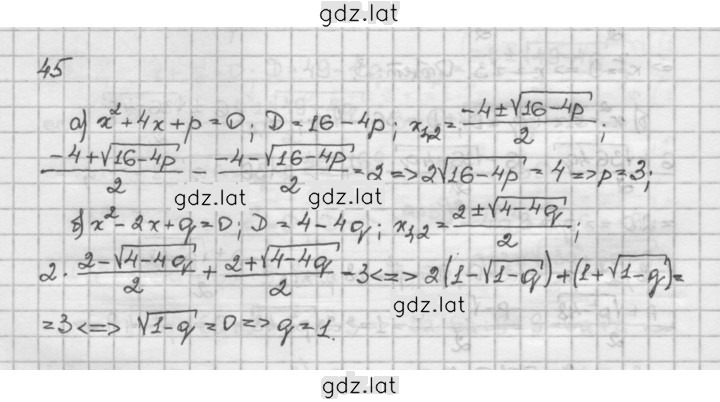 gdz.lat
45
а) x²+4x+p=0; D=16-4p; x₁,₂=(-4±√(16-4p))/2;
(-4+√(16-4p))/2 - (-4-√(16-4p))/2=2=>2√(16-4p)=4=>p=3;
gdz.lat gdz.lat
б) x²-2x+q=0; D=4-4q; x₁,₂=(2±√(4-4q))/2;
2·(2-√(4-4q))/2+(2+√(4-4q))/2=3<=>2(1-√(1-q))+(1+√(1-q))=
gdz.lat
=3<=>√(1-q)=0=>q=1.
gdz.lat